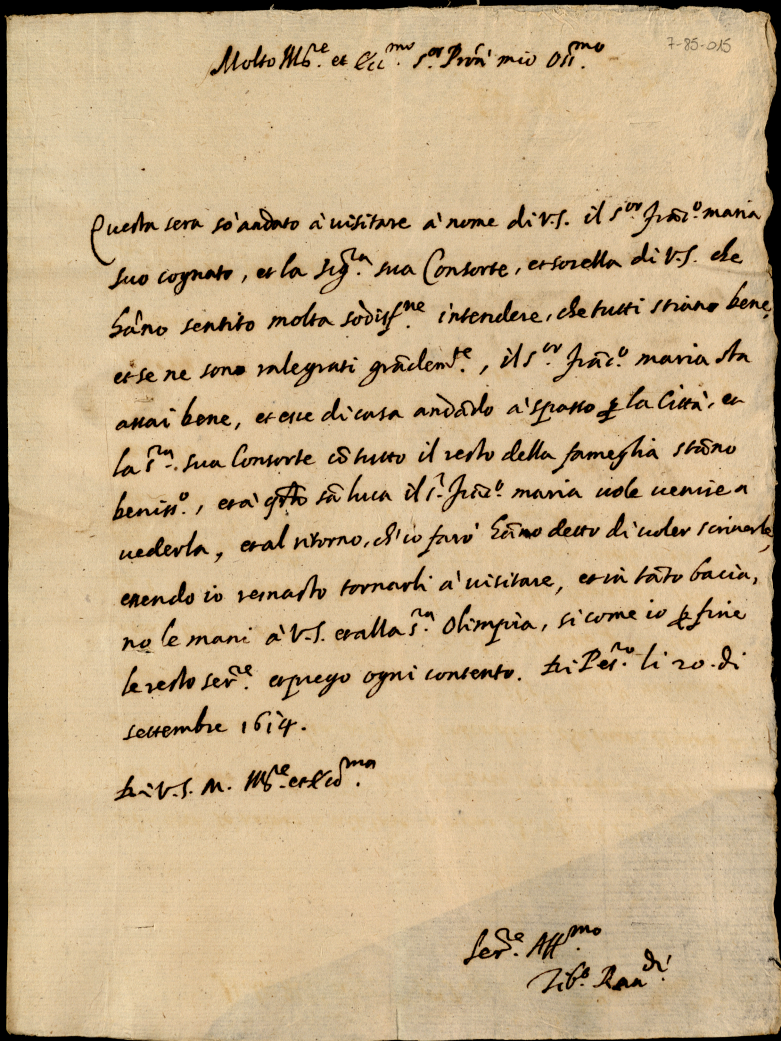 7-85-015
Molto Ill.re et Ecc.mo S.or Pron mio Oss.mo
Questa sera sò andato à visitare à nome di V.S. il s.or Franc.o maria
suo cognato, et la Sig.ra sua Consorte, et sorella di V.S. che
hãno sentito molta sodisf.ne intendere, che tutti stiano bene,
et se ne sono ralegrati grãdem.te, il s.or Frãc.o maria sta
assai bene, et esce di casa andãdo à spasso p la Città, et
la s.ra sua Consorte cõ tutto il resto della fameglia stãno
beniss.o, et à qsto sã luca il s.r Frãc.o maria vole venire a
vederla, et al ritorno, ch'io farò hãno detto di voler scriverle,
essendo io remasto tornarli à visitare, et in tãto bacia,
no le mani à V.S. et alla s.ra Olimpia, si come io p fine
le resto ser.re et prego ogni contento. Di Pes.ro li 20. di
settembre 1614.
Di V.S. M. Ill.re et Ecc.ma
Ser.re Aff.mo
Tib.o